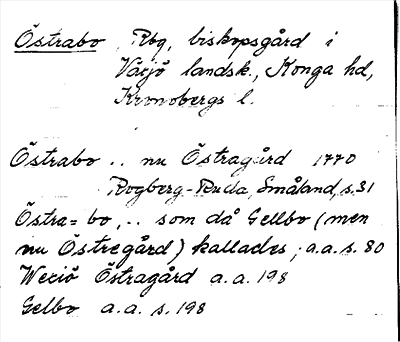 Östrabo Rbg, biskopsgård i
Växjö landsk., Konga hd,
Kronobergs l.
Östrabo .. nu Östragård 1770
Rogberg-Ruda, Småland, s.31
Östra=bo,.. som då Gellbo (men
nu Östregård) kallades; a.a.s. 80
Wexiö Östragård a.a. 198
Gelbo a.a. s. 198